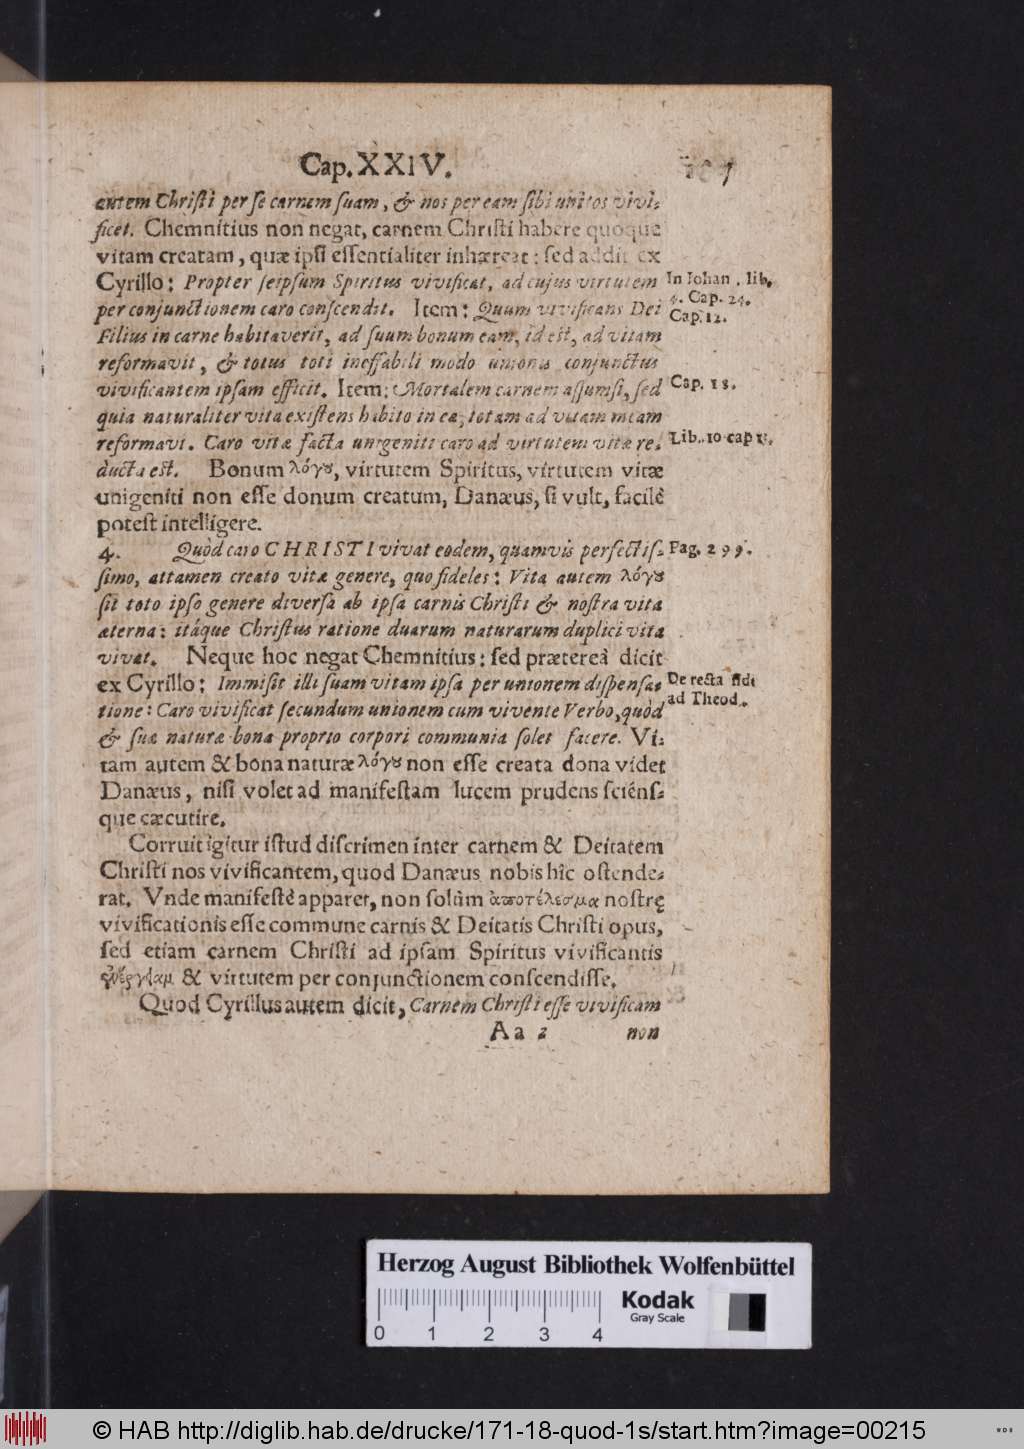 Cap. XXIV.
autem Christi per se carnem suam, & nos per eam sibi unitos vivi-
ficet. Chemnitius non negat, carnem Christi habere quoque
vitam creatam, quæ ipsi essentialiter inhæreat: sed addit ex
Cyrillo: Propter seipsum Spiritus vivificat, ad cujus virtutem
In Iohan. lib.
4. Cap. 24.
per conjunctionem caro conscendit. Item: Quum vivificans Dei
Cap. 12.
Filius in carne habitaverit, ad suum bonum eam, id est, ad vitam
reformavit, & totus toti ineffabili modo unionis conjunctus
vivificantem ipsam efficit. Item: Mortalem carnem assumsi, sed
Cap. 18.
quia naturaliter vita existens habito in ea, totam ad vitam meam
reformavi. Caro vitæ facta unigeniti caro ad virtutem vitæ re-
Lib. 10 cap
ducta est. Bonum λόγȣ, virtutem Spiritus, virtutem vitæ
unigeniti non esse donum creatum, Danæus, si vult, facilè
potest intelligere.
4. Quòd caro CHRISTI vivat eodem, quamvis perfectis-
Pag. 299.
simo, attamen creato vitæ genere, quo fideles: Vita autem λόγȣ
sit toto ipso genere diversa ab ipsa carnis Christi & nostra vita
æterna: itáque Christus ratione duarum naturarum duplici vita
vivat. Neque hoc negat Chemnitius: sed prætereà dicit
ex Cyrillo: Immisit illi suam vitam ipsa per unionem dispensa-
De recta fide
ad Theod.
tione: Caro vivificat secundum unionem cum vivente Verbo, quòd
& suæ naturæ bona proprio corpori communia solet facere. Vi-
tam autem & bona naturæ λόγȣ non esse creata dona videt
Danæus, nisi volet ad manifestam lucem prudens sciéns-
que cæcutire.
Corruit igitur istud discrimen inter carnem & Deitatem
Christi nos vivificantem, quod Danæus nobis hîc ostende-
rat. Vnde manifestè apparet, non solùm ἀποτέλεσμα nostrę
vivificationis esse commune carnis & Deitatis Christi opus,
sed etiam carnem Christi ad ipsam Spiritus vivificantis
ἐνέργειαμ & virtutem per conjunctionem conscendisse.
Quod Cyrillus autem dicit, Carnem Christi esse vivificam
Aa 2
non
Herzog August Bibliothek Wolfenbüttel
Kodak
Gray Scale
0 1 2 3 4
© HAB http://diglib.hab.de/drucke/171-18-quod-1s/start.htm?image=00215